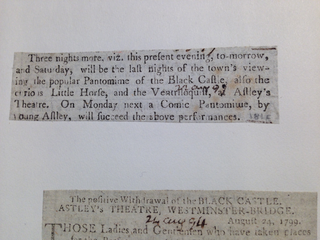 Three nights more. viz. this present evening, to-morrow,
and Saturday, will be the last nights of the town's view-
ing the popular Pantomime of the Black Castle, also the
curious Little Horse, and the Ventriloquist, at Astley's
Theatre. On Monday next a Comic Pantomime, by
young Astley, will succeed the above performances.
The positive Withdrawal of the BLACK CASTLE.
ASTLEY'S THEATRE, WESTMINSTER-BRIDGE.
August 24, 1799.
THOSE Ladies and Gentlemen who have taken places